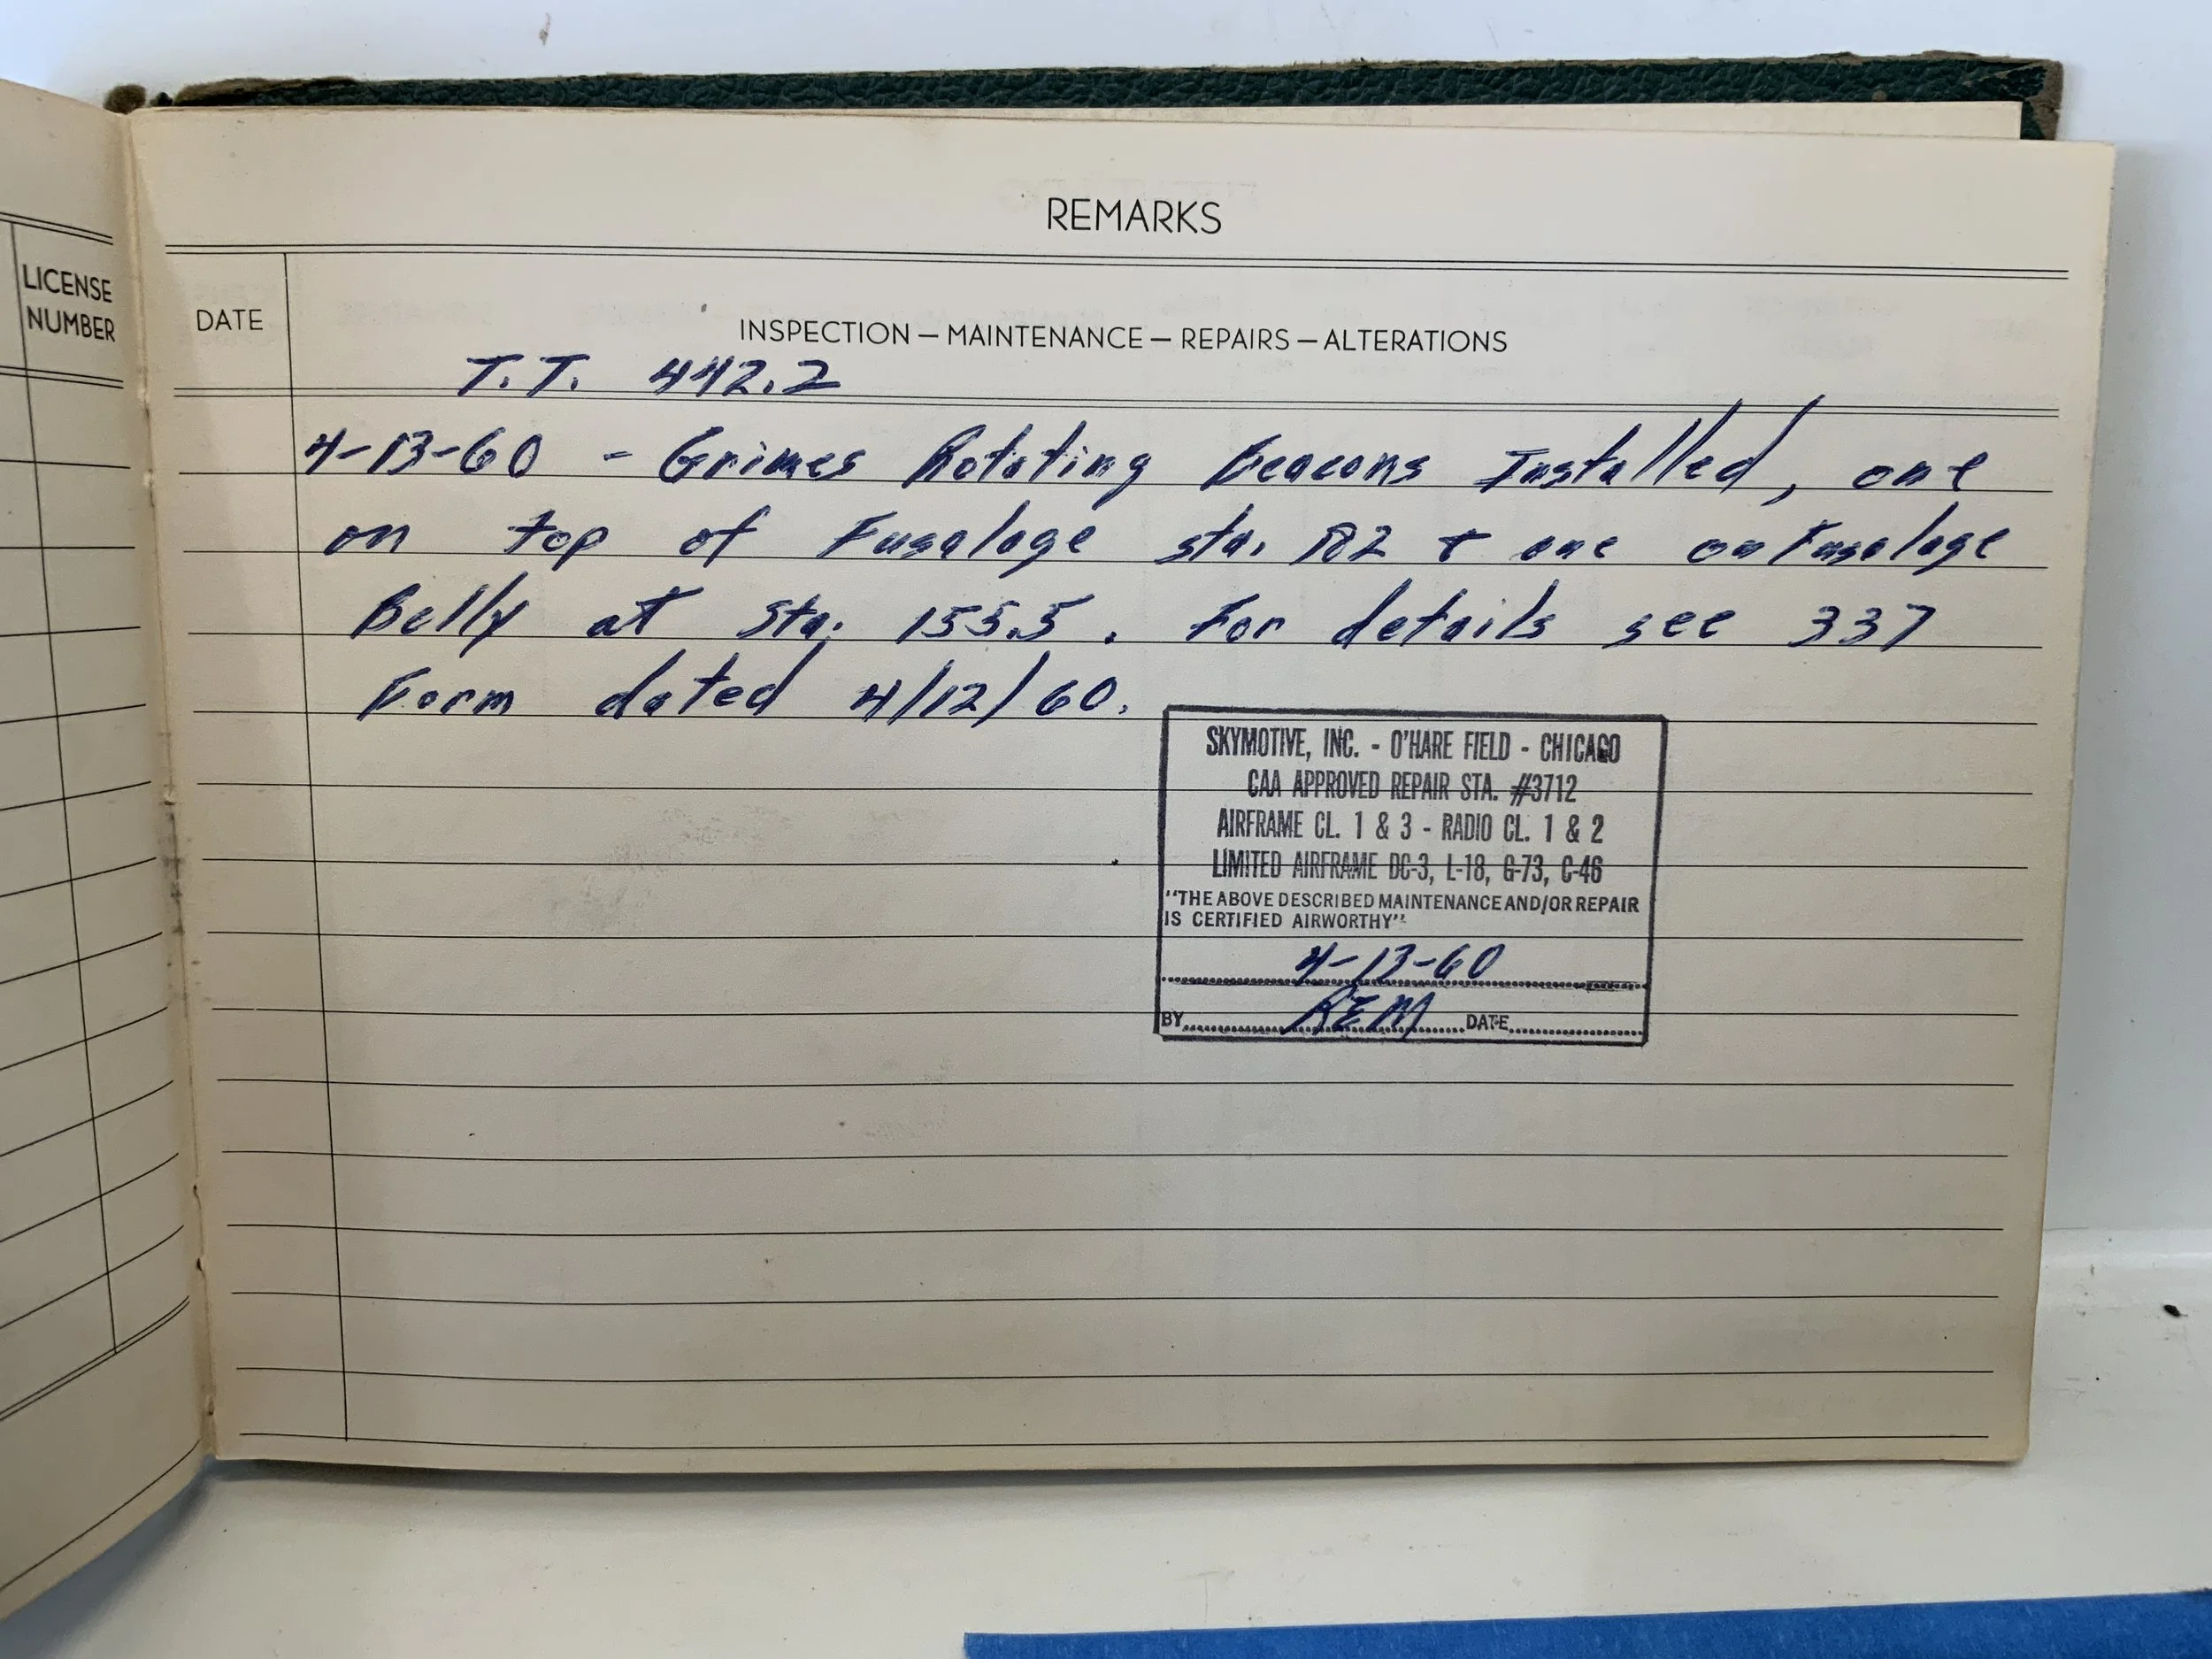 LICENSE
NUMBER
REMARKS
DATE
INSPECTION — MAINTENANCE — REPAIRS — ALTERATIONS
T.T. 442.2
4-13-60 - Grimes Rotating Beacons Installed, one
on top of Fusalage sta. & one on Fusalage
Belly at Sta. 155.5. For details see 337
Form dated 4/12/60.
SKYMOTIVE, INC. - O'HARE FIELD - CHICAGO
CAA APPROVED REPAIR STA. #3712
AIRFRAME CL. 1 & 3 - RADIO CL. 1 & 2
LIMITED AIRFRAME DC-3, L-18, G-73, C-46
"THE ABOVE DESCRIBED MAINTENANCE AND/OR REPAIR
IS CERTIFIED AIRWORTHY"
4-13-60
BY REM DATE